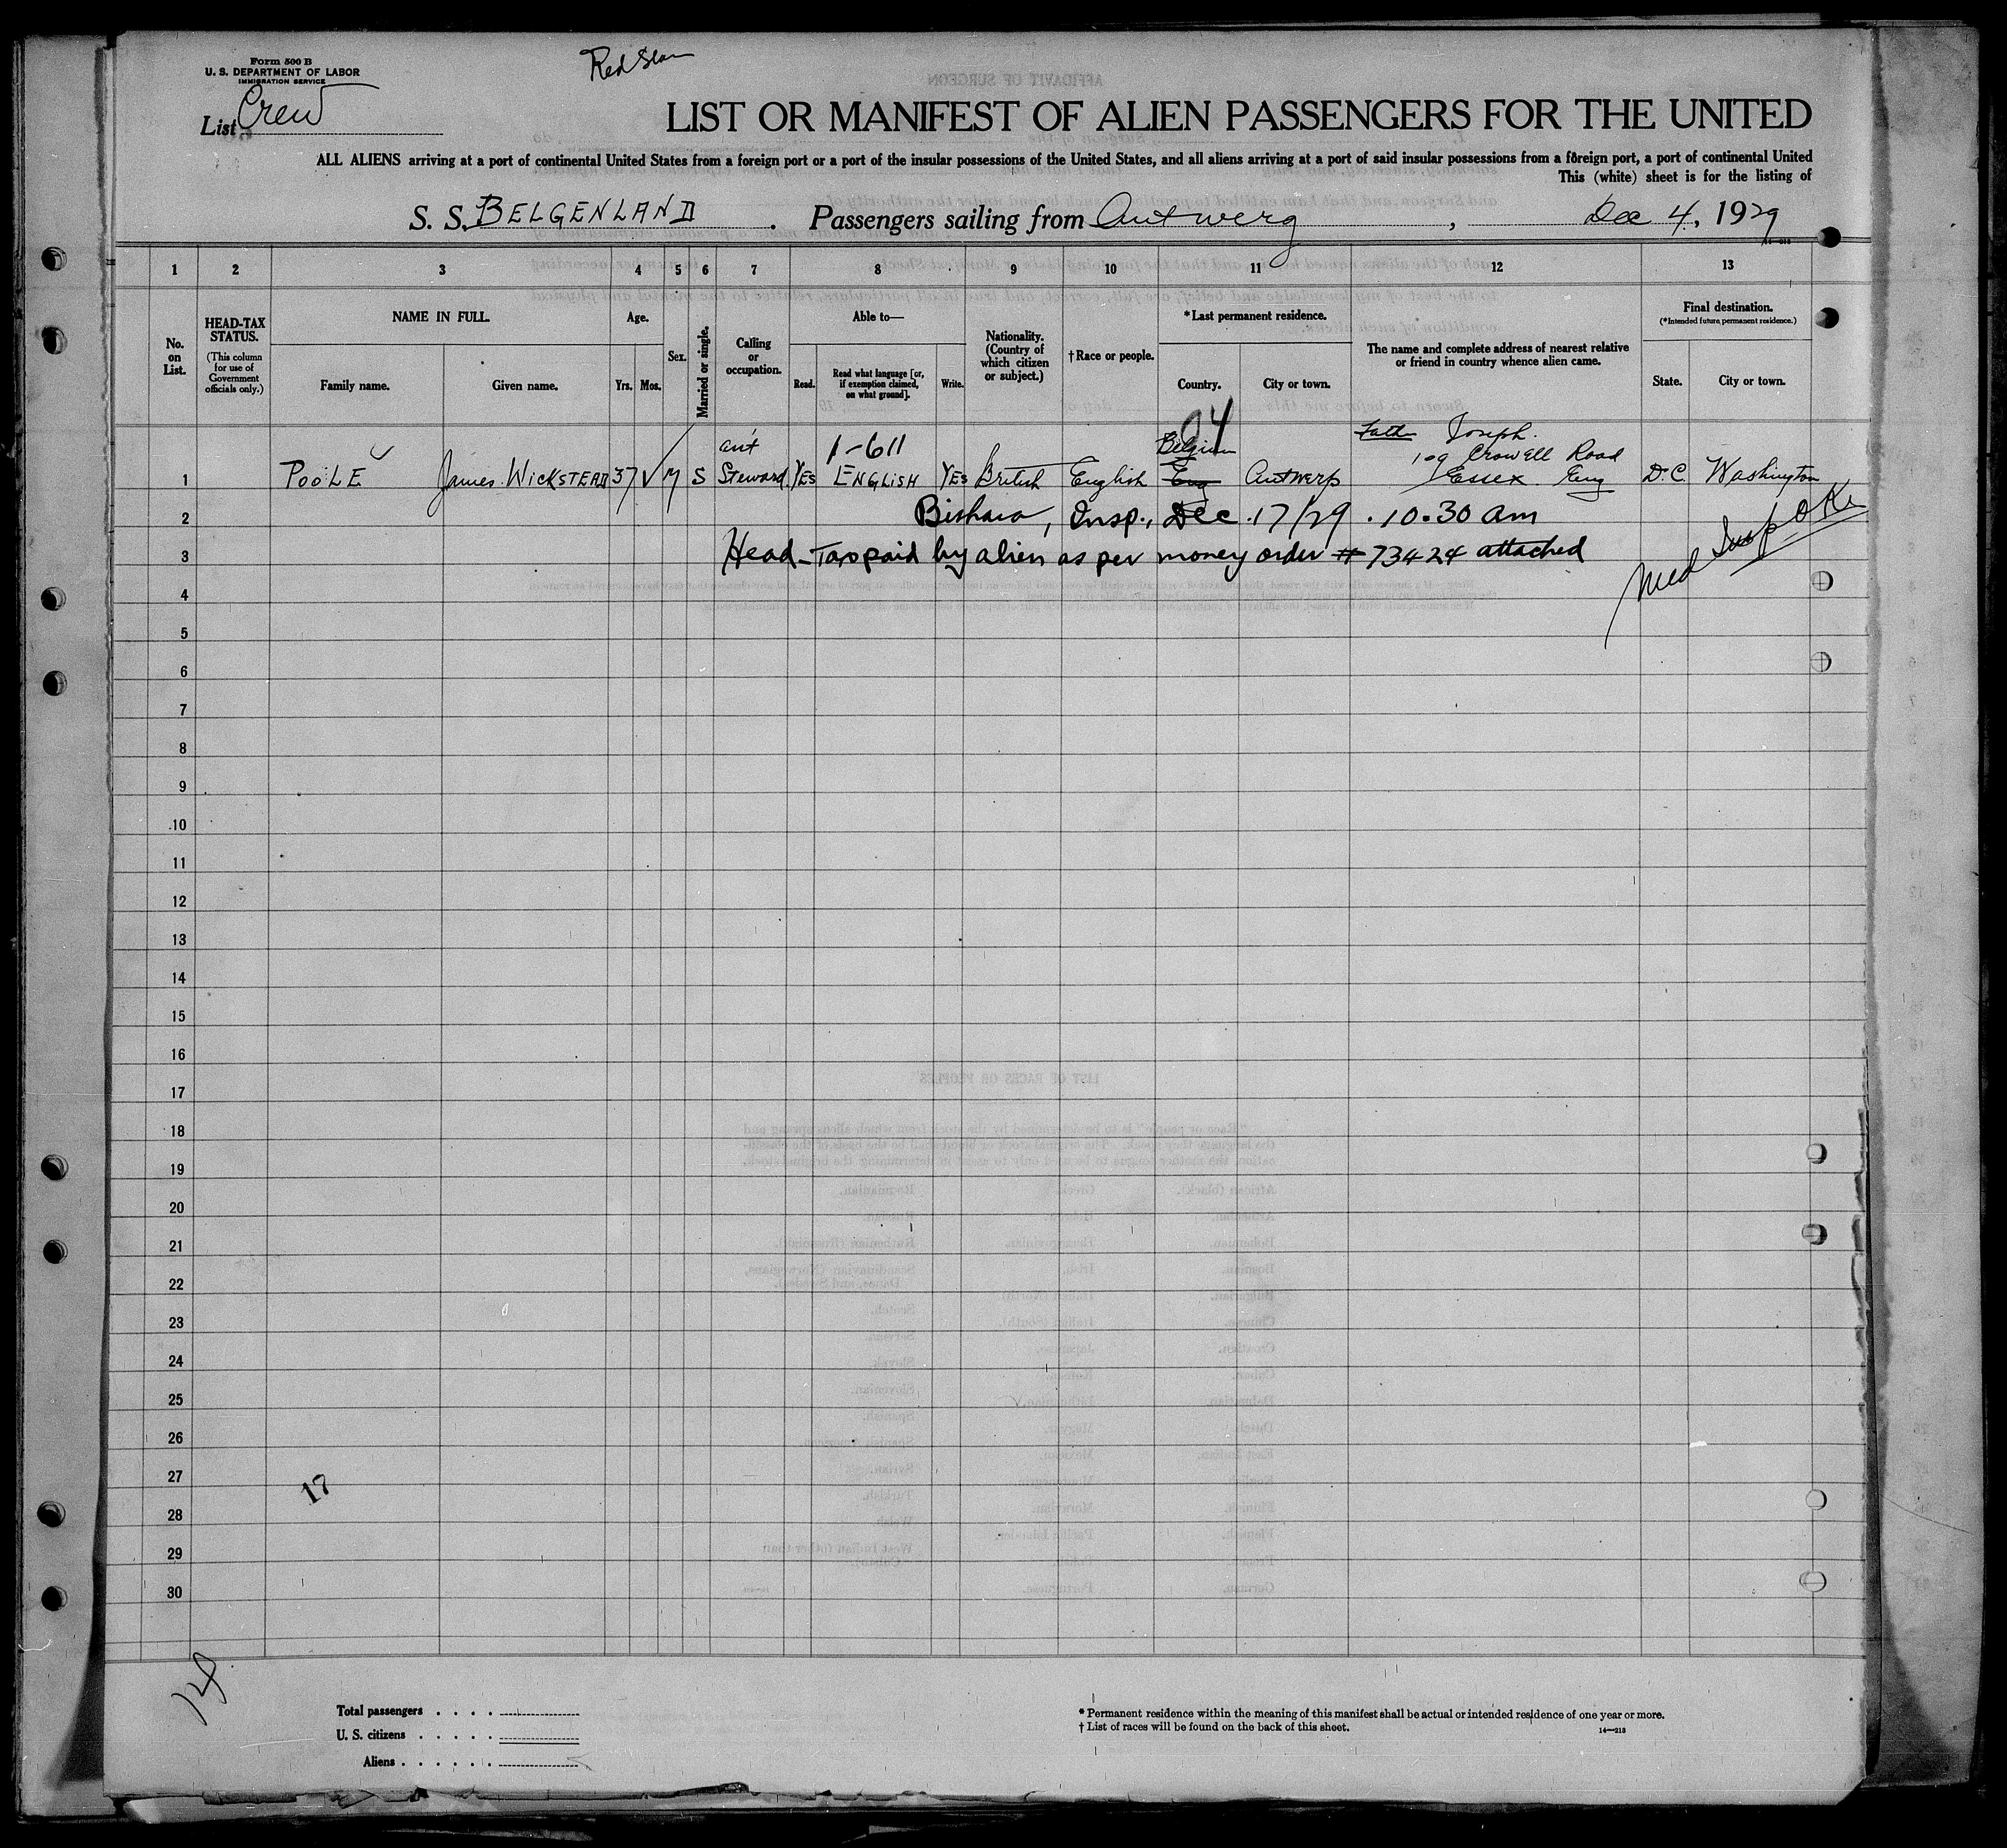 Form 500 B
U. S. DEPARTMENT OF LABOR
IMMIGRATION SERVICE
Red Star
List Crew
LIST OR MANIFEST OF ALIEN PASSENGERS FOR THE UNITED
ALL ALIENS arriving at a port of continental United States from a foreign port or a port of the insular possessions of the United States, and all aliens arriving at a port of said insular possessions from a foreign port, a port of continental United
This (white) sheet is for the listing of
S. S. BELGENLAND. Passengers sailing from Antwerp, Dec 4, 1929
1 2 3 4 5 6 7 8 9 10 11 12 13
No. on List.
HEAD-TAX STATUS.
(This column for use of Government officials only.)
NAME IN FULL.
Family name. Given name.
Age.
Yrs. Mos.
Sex.
Married or single.
Calling or occupation.
Able to—
Read. Read what language [or, if exemption claimed, on what ground]. Write.
Nationality. (Country of which citizen or subject.)
†Race or people.
*Last permanent residence.
Country. City or town.
The name and complete address of nearest relative or friend in country whence alien came.
Final destination.
(*Intended future permanent residence.)
State. City or town.
04
ant 1-611 Belgium Father Joseph.
109 Crowell Road
1 POOLE James Wickstead 37 M S Steward YES ENGLISH YES British English Eng Antwerp Essex Eng D.C. Washington
2 Bishara, Insp., Dec. 17/29. 10.30 am
3 Head-Tax paid by alien as per money order # 73424 attached
Med Insp OK
4
5
6
7
8
9
10
11
12
13
14
15
16
17
18
19
20
21
22
23
24
25
26
27
17
28
29
30
Total passengers . . . .
U. S. citizens . . . . .
Aliens . . . . . .
* Permanent residence within the meaning of this manifest shall be actual or intended residence of one year or more.
† List of races will be found on the back of this sheet.
14—213